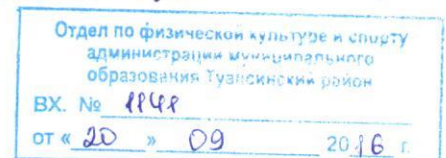 Отдел по физической культуре и спорту
администрации муниципального
образования Туапсинский район
ВХ. №
от « 20 » 09 2016 г.